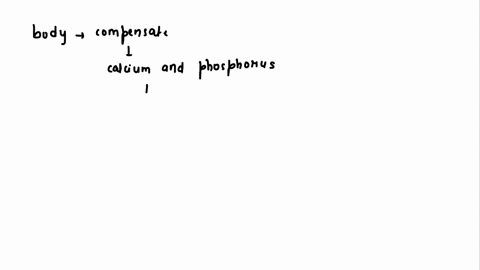 body → compensate
↓
calcium and phosphorus